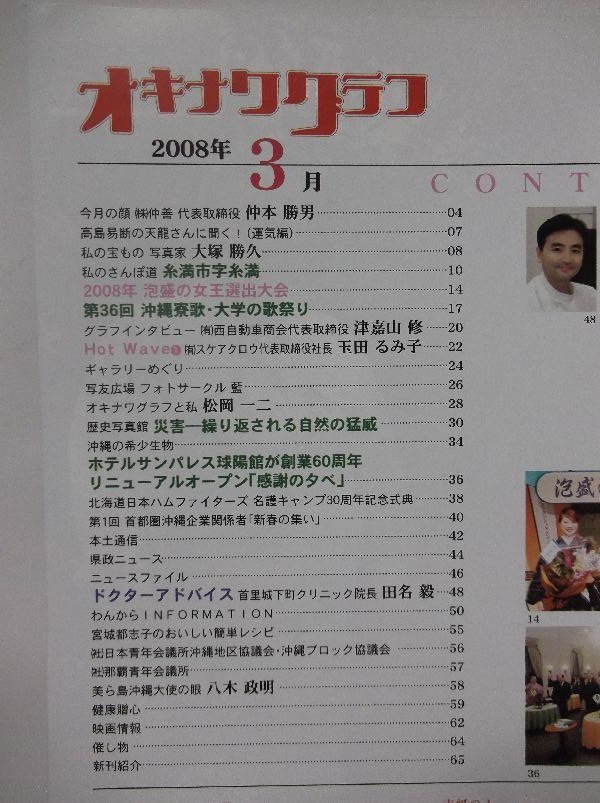 オキナワグラフ
2008年 3月
CONT
今月の顔 ㈱仲善 代表取締役 仲本 勝男 04
高島易断の天龍さんに聞く!(運気編) 07
私の宝もの 写真家 大塚 勝久 08
私のさんぽ道 糸満市字糸満 10
2008年 泡盛の女王選出大会 14
第36回 沖縄寮歌・大学の歌祭り 17
グラフインタビュー ㈲西自動車商会代表取締役 津嘉山 修 20
Hot Wave① ㈲スケアクロウ代表取締役社長 玉田 るみ子 22
ギャラリーめぐり 24
写友広場 フォトサークル 藍 26
オキナワグラフと私 松岡 一二 28
歴史写真館 災害―繰り返される自然の猛威 30
沖縄の希少生物 34
ホテルサンパレス球陽館が創業60周年
リニューアルオープン「感謝の夕べ」 36
北海道日本ハムファイターズ 名護キャンプ30周年記念式典 38
第1回 首都圏沖縄企業関係者「新春の集い」 40
本土通信 42
県政ニュース 44
ニュースファイル 46
ドクターアドバイス 首里城下町クリニック院長 田名 毅 48
わんからINFORMATION 50
宮城都志子のおいしい簡単レシピ 55
㈳日本青年会議所沖縄地区協議会・沖縄ブロック協議会 56
㈳那覇青年会議所 57
美ら島沖縄大使の眼 八木 政明 58
健康贈心 59
映画情報 62
催し物 64
新刊紹介 65
48
泡盛の
14
36